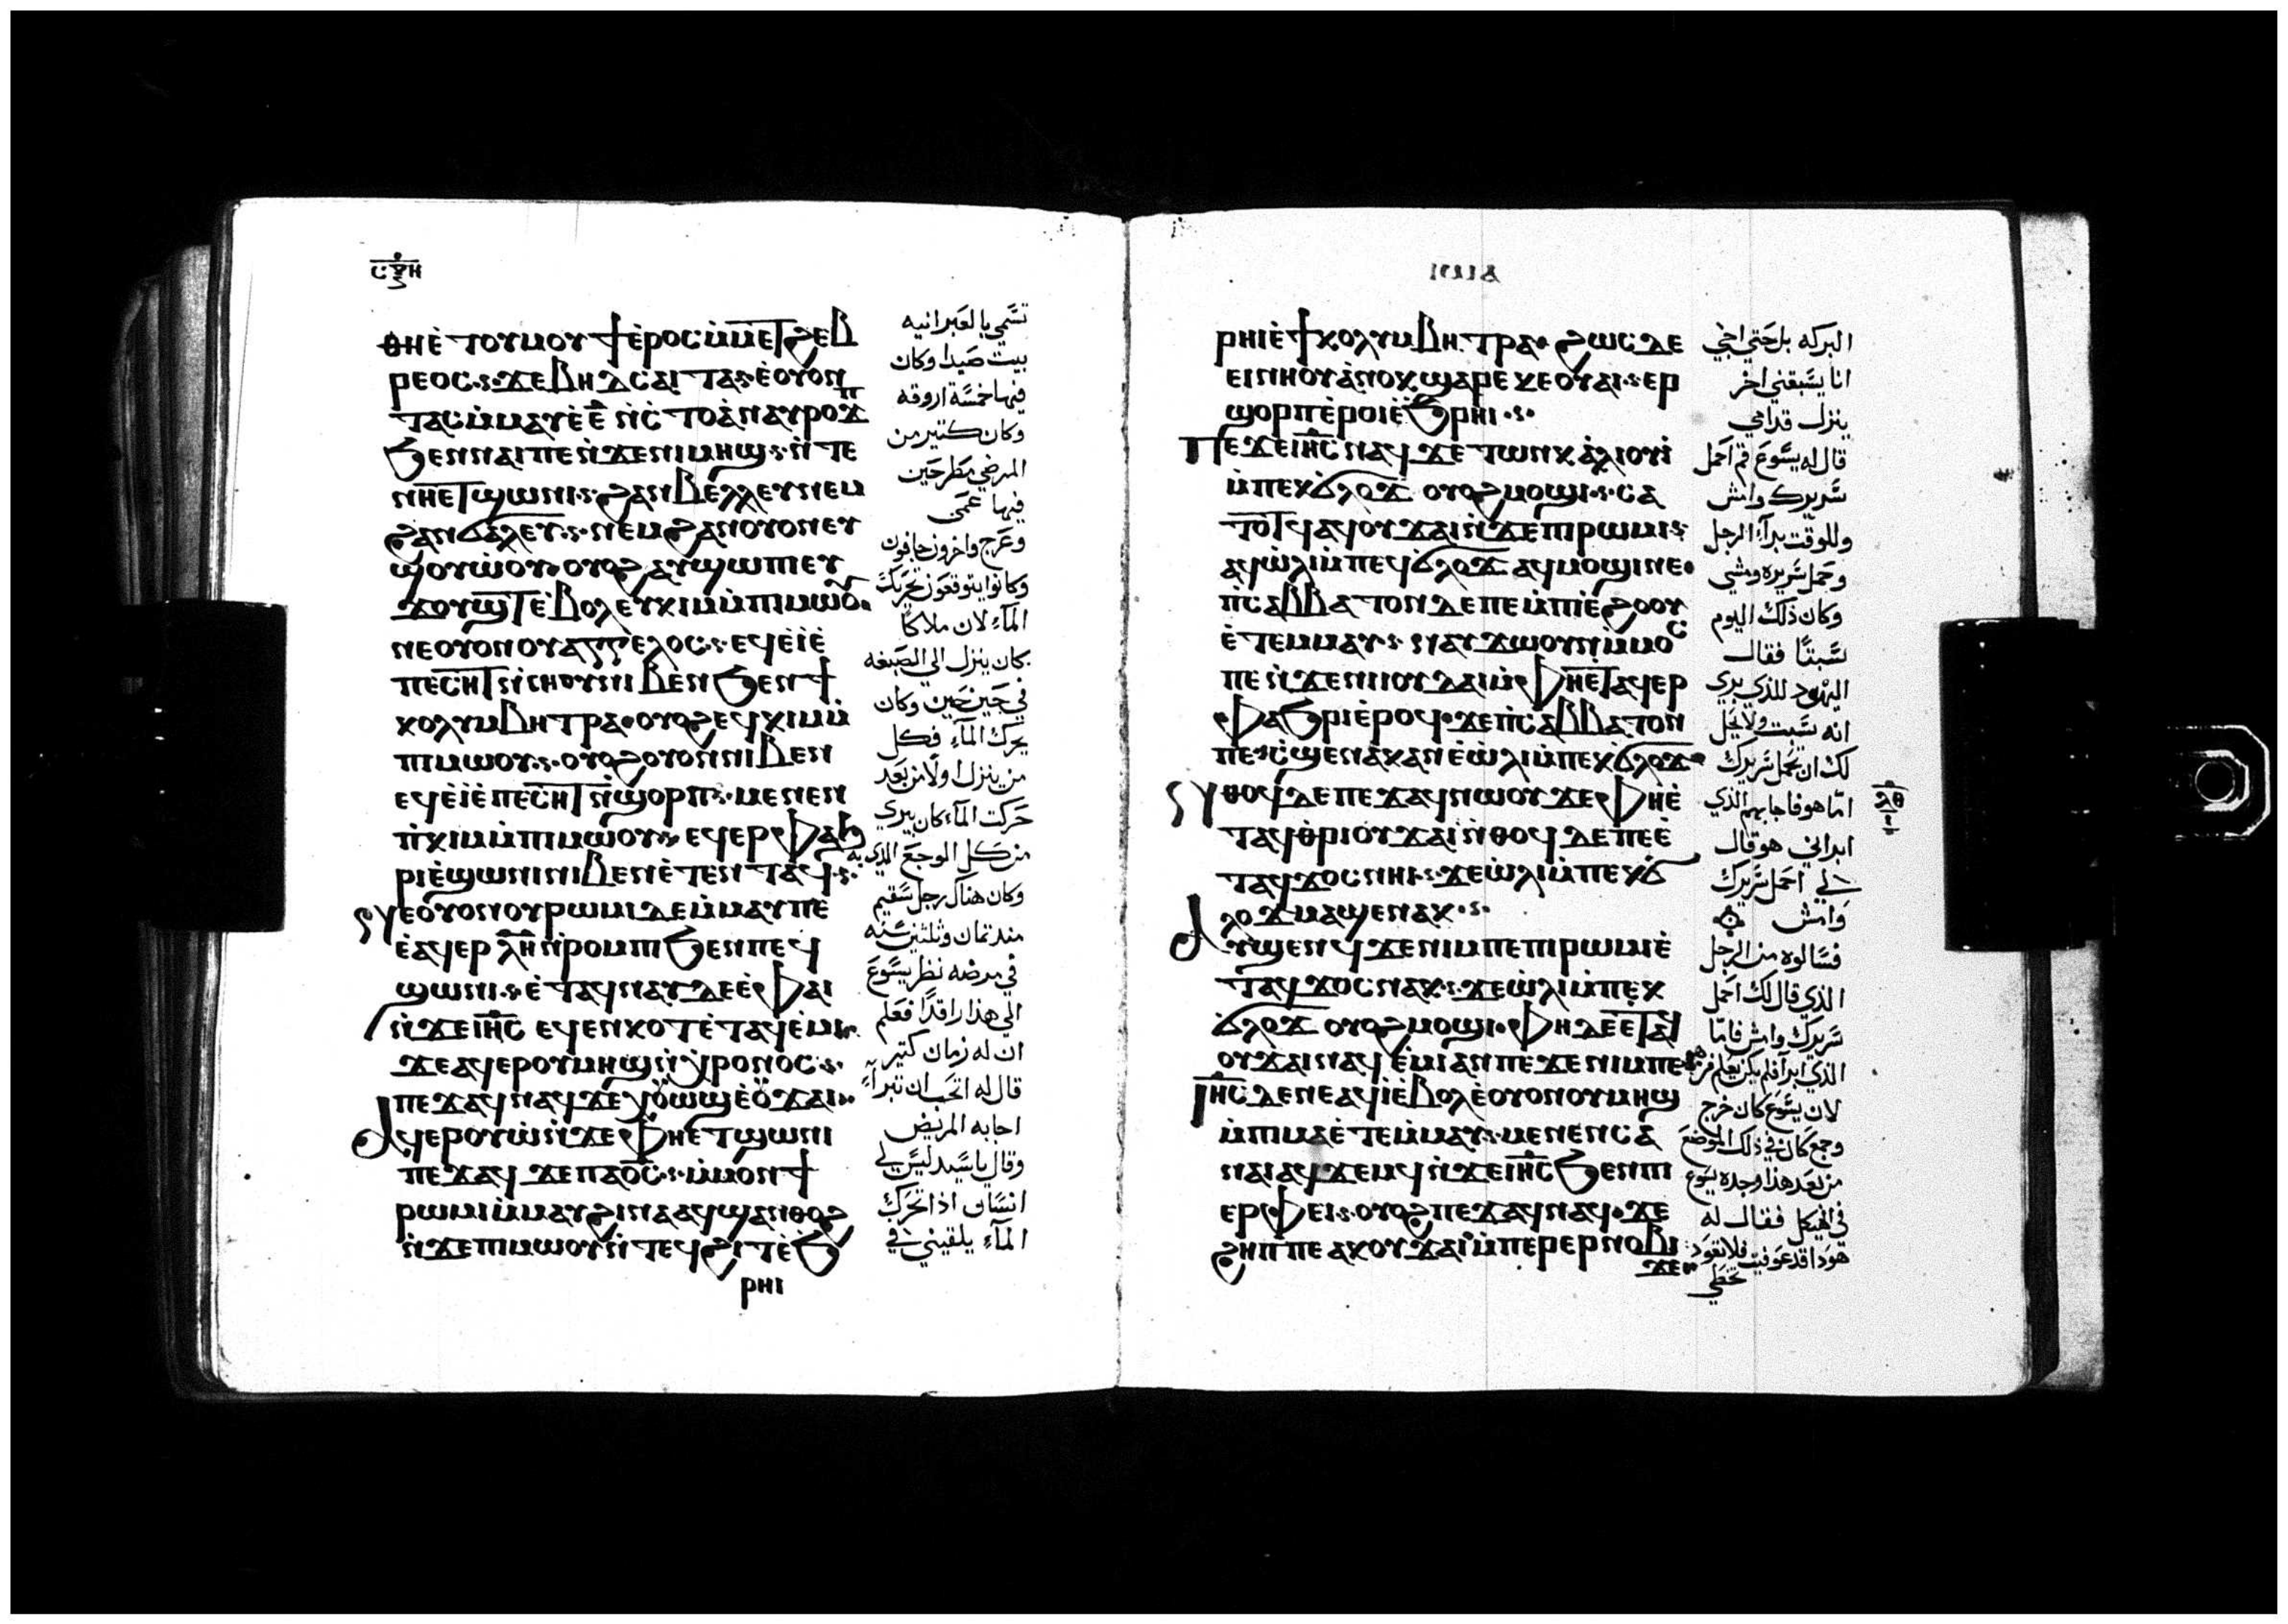 ⲥⲝⲏ
ⲑⲏⲉ̀ ⲧⲟⲩⲙⲟⲩϯⲉ̀ⲣⲟⲥ ⲙ̀ⲙⲉⲧϩⲉⲃ
ⲣⲉⲟⲥ ϫⲉⲃⲏⲇⲥⲁⲓⲧⲁ ⲉ̀ⲟⲩⲟⲛ
ⲧⲁⲥ ⲙ̀ⲙⲁⲩ ⲉ̀ⲉ̅ ⲛ̀ⲥ̀ⲧⲟⲁ̀
ϧⲉⲛⲛⲁⲓ ⲡⲉ ⲛ̀ϫⲉⲛⲓⲙⲏϣ ⲛ̀ⲧⲉ
ⲛⲏⲉⲧϣⲱⲛⲓ ϩⲁⲛⲃⲉⲗⲗⲉⲩ ⲛⲉⲙ
ϩⲁⲛϭⲁⲗⲉⲩ ⲛⲉⲙϩⲁⲛⲟⲩⲟⲛ ⲉⲩ
ϣⲟⲩⲱ̀ⲟⲩ ⲟⲩⲟϩ ⲁⲩϣⲱⲡ ⲉⲩ
ϫⲟⲩϣⲧ ⲉ̀ⲃⲟⲗ ⲉⲩⲭⲓⲙ ⲙ̀ⲡⲓⲙⲱⲟⲩ
ⲛⲉⲟⲩⲟⲛ ⲟⲩⲁⲅⲅⲉⲗⲟⲥ ⲉϥⲉ̀ⲓⲉ̀
ⲡⲉⲥⲏⲧ ⲛ̀ⲥⲏⲟⲩ ⲛⲓⲃⲉⲛ ϧⲉⲛϯ
ⲕⲟⲗⲩⲙⲃⲏⲧⲣⲁ ⲟⲩⲟϩ ⲉϥⲕⲓⲙ ⲙ̀
ⲡⲓⲙⲱⲟⲩ ⲟⲩⲟϩ ⲟⲩⲟⲛ ⲛⲓⲃⲉⲛ
ⲉϥⲉ̀ⲓⲉ̀ⲡⲉⲥⲏⲧ ⲛ̀ϣⲟⲣⲡ ⲙⲉⲛⲉⲛ
ⲡ̀ⲕⲓⲙ ⲙ̀ⲡⲓⲙⲱⲟⲩ ⲉϥⲉⲣⲫⲁϧ
ⲣⲓ ⲉ̀ϣⲱⲛⲓ ⲛⲓⲃⲉⲛ ⲉ̀ⲧⲉⲛⲧⲁϥ
ⲛⲉⲟⲩⲟⲛ ⲟⲩⲣⲱⲙⲓ ⲇⲉ ⲙ̀ⲙⲁⲩ ⲡⲉ
ⲉ̀ⲁϥⲉⲣ ⲗⲏ ⲛ̀ⲣⲟⲙⲡⲓ ϧⲉⲛⲡⲉϥ
ϣⲱⲛⲓ ⲉ̀ⲧⲁϥⲛⲁⲩ ⲇⲉ ⲉ̀ⲫⲁⲓ
ⲛ̀ϫⲉⲓⲏ̅ⲥ̅ ⲉϥⲉⲛⲕⲟⲧ ⲉ̀ⲧⲁϥⲉ̀ⲙⲓ
ϫⲉⲁϥⲉⲣⲟⲩⲙⲏϣ ⲛ̀ⲭⲣⲟⲛⲟⲥ
ⲡⲉϫⲁϥ ⲛⲁϥ ϫⲉ ⲭⲟⲩⲱϣ ⲉ̀ⲟⲩϫⲁⲓ
ⲁϥⲉⲣⲟⲩⲱ̀ ⲛ̀ϫⲉⲫⲏⲉⲧϣⲱⲛⲓ
ⲡⲉϫⲁϥ ϫⲉⲡⲁⲟ̅ⲥ̅ ⲙ̀ⲙⲟⲛϯ
ⲣⲱⲙⲓ ⲙ̀ⲙⲁⲩ ϩⲓⲛⲁ ⲁϥϣⲁⲛⲑⲟϩ
ⲛ̀ϫⲉⲡⲓⲙⲱⲟⲩ ⲛ̀ⲧⲉϥϩⲓⲧ ⲉ̀ϧ
ⲣⲏⲓ
تسمي بالعبرانيه
بيت صيدا وكان
فيها خمسة اروقه
وكان كثير من
المرضي مطرحين
فيها عمي
وعرج واخرون جافون
وكانوا يتوقعون تحريك
المآء لان ملاكا
كان ينزل الي الصبغه
في حين حين وكان
يحرك المآء فكل
من ينزل اولا من بعد
حركت المآء كان يبري
من كل الوجع الذي به
وكان هناك رجل سقيم
منذ ثمان وثلثين سنه
في مرضه نظر يسوع
الي هذا راقدًا فعلم
ان له زمان كثير
قال له اتحب ان تبرآء
اجابه المريض
وقال ياسيد ليس لي
انسان اذا تحرك
المآء يلقيني في
ⲣⲏⲓ ⲉ̀ϯⲕⲟⲗⲩⲙⲃⲏⲧⲣⲁ ϩⲱⲥ ⲇⲉ
ⲉⲓⲛⲏⲟⲩ ⲁ̀ⲛⲟⲕ ϣⲁⲣⲉ ⲕⲉⲟⲩⲁⲓ ⲉⲣ
ϣⲟⲣⲡ ⲉ̀ⲣⲟⲓ ⲉ̀ϧⲣⲏⲓ
ⲡⲉϫⲉⲓⲏ̅ⲥ̅ ⲛⲁϥ ϫⲉ ⲧⲱⲛⲕ ⲁ̀ⲗⲓⲟⲩⲓ̀
ⲙ̀ⲡⲉⲕϭⲗⲟϫ ⲟⲩⲟϩ ⲙⲟϣⲓ ⲥⲁ
ⲧⲟⲧϥ ⲁϥⲟⲩϫⲁⲓ ⲛ̀ϫⲉⲡⲓⲣⲱⲙⲓ
ⲁϥⲱ̀ⲗⲓ ⲙ̀ⲡⲉϥϭⲗⲟϫ ⲁϥⲙⲟϣⲓ ⲛⲉ
ⲡ̀ⲥⲁⲃⲃⲁⲧⲟⲛ ⲇⲉ ⲡⲉ ⲙ̀ⲡⲓⲉ̀ϩⲟⲟⲩ
ⲉ̀ⲧⲉⲙⲙⲁⲩ ⲛⲁⲩϫⲱ ⲟⲩⲛ ⲙ̀ⲙⲟⲥ
ⲡⲉ ⲛ̀ϫⲉⲛⲓⲓⲟⲩⲇⲁⲓ ⲙ̀ⲫⲏⲉⲧⲁϥⲉⲣ
ⲫⲁϧⲣⲓ ⲉ̀ⲣⲟϥ ϫⲉ ⲡ̀ⲥⲁⲃⲃⲁⲧⲟⲛ
ⲡⲉ ⲥ̀ϣⲉ ⲛⲁⲕ ⲁⲛ ⲉ̀ⲱ̀ⲗⲓ ⲙ̀ⲡⲉⲕϭⲗⲟϫ
ⲛⲑⲟϥ ⲇⲉ ⲡⲉϫⲁϥ ⲛⲱⲟⲩ ϫⲉ ⲫⲏⲉ̀
ⲧⲁϥⲑⲣⲓⲟⲩϫⲁⲓ ⲛ̀ⲑⲟϥ ⲇⲉ ⲡⲉ ⲉ̀
ⲧⲁϥϫⲟⲥ ⲛⲏⲓ ϫⲉ ⲱ̀ⲗⲓ ⲙ̀ⲡⲉⲕϭ
ⲗⲟϫ ⲙⲁϣⲉⲛⲁⲕ
ⲁⲩϣⲉⲛϥ ϫⲉ ⲛⲓⲙ ⲡⲉ ⲡⲓⲣⲱⲙⲓ ⲉ̀
ⲧⲁϥϫⲟⲥ ⲛⲁⲕ ϫⲉ ⲱ̀ⲗⲓ ⲙ̀ⲡⲉⲕ
ϭⲗⲟϫ ⲟⲩⲟϩ ⲙⲟϣⲓ ⲫⲏ ⲇⲉ ⲉⲧⲁϥ
ⲟⲩϫⲁⲓ ⲛⲁϥⲉ̀ⲙⲓ ⲁⲛ ⲡⲉ ϫⲉ ⲛⲓⲙ ⲡⲉ
ⲓⲏ̅ⲥ̅ ⲇⲉ ⲛⲉⲁϥⲓ̀ ⲉ̀ⲃⲟⲗ ⲉ̀ⲟⲩⲟⲛ ⲟⲩⲙⲏϣ
ⲙ̀ⲡⲓⲙⲁ ⲉ̀ⲧⲉⲙ̀ⲙⲁⲩ ⲙⲉⲛⲉⲛⲥⲁ
ⲛⲁⲓ ⲁϥϫⲉⲙϥ ⲛ̀ϫⲉⲓⲏ̅ⲥ̅ ϧⲉⲛⲡⲓ
ⲉⲣⲫⲉⲓ ⲟⲩⲟϩ ⲡⲉϫⲁϥ ⲛⲁϥ ϫⲉ
ϩⲏⲡⲡⲉ ⲁⲕⲟⲩϫⲁⲓ ⲙ̀ⲡⲉⲣⲉⲣⲛⲟⲃⲓ
ϫⲉ
البركه بل حتي اجي
انا يسبقني اخر
ينزل قدامي
قال له يسوع قم احمل
سريرك وامش
وللوقت برآء الرجل
وحمل سريره ومشي
وكان ذلك اليوم
سبتًا فقال
اليهود للذي بري
انه سبت ولا يحل
لك ان تحمل سريرك
امّا هو فاجابهم الذي
ابراني هو قال
لي احمل سريرك
وامش
فسالوه من الرجل
الذي قال لك احمل
سريرك وامش فامّا
الذي ابرآ فلم يكن يعلم من هو
لان يسوع كان خرج
وجمع كان في ذلك الموضع
من بعد هذا وجده يسوع
في الهيكل فقال له
هوذا قد عوفيت فلا تعود
تخطي
ⲗⲑ